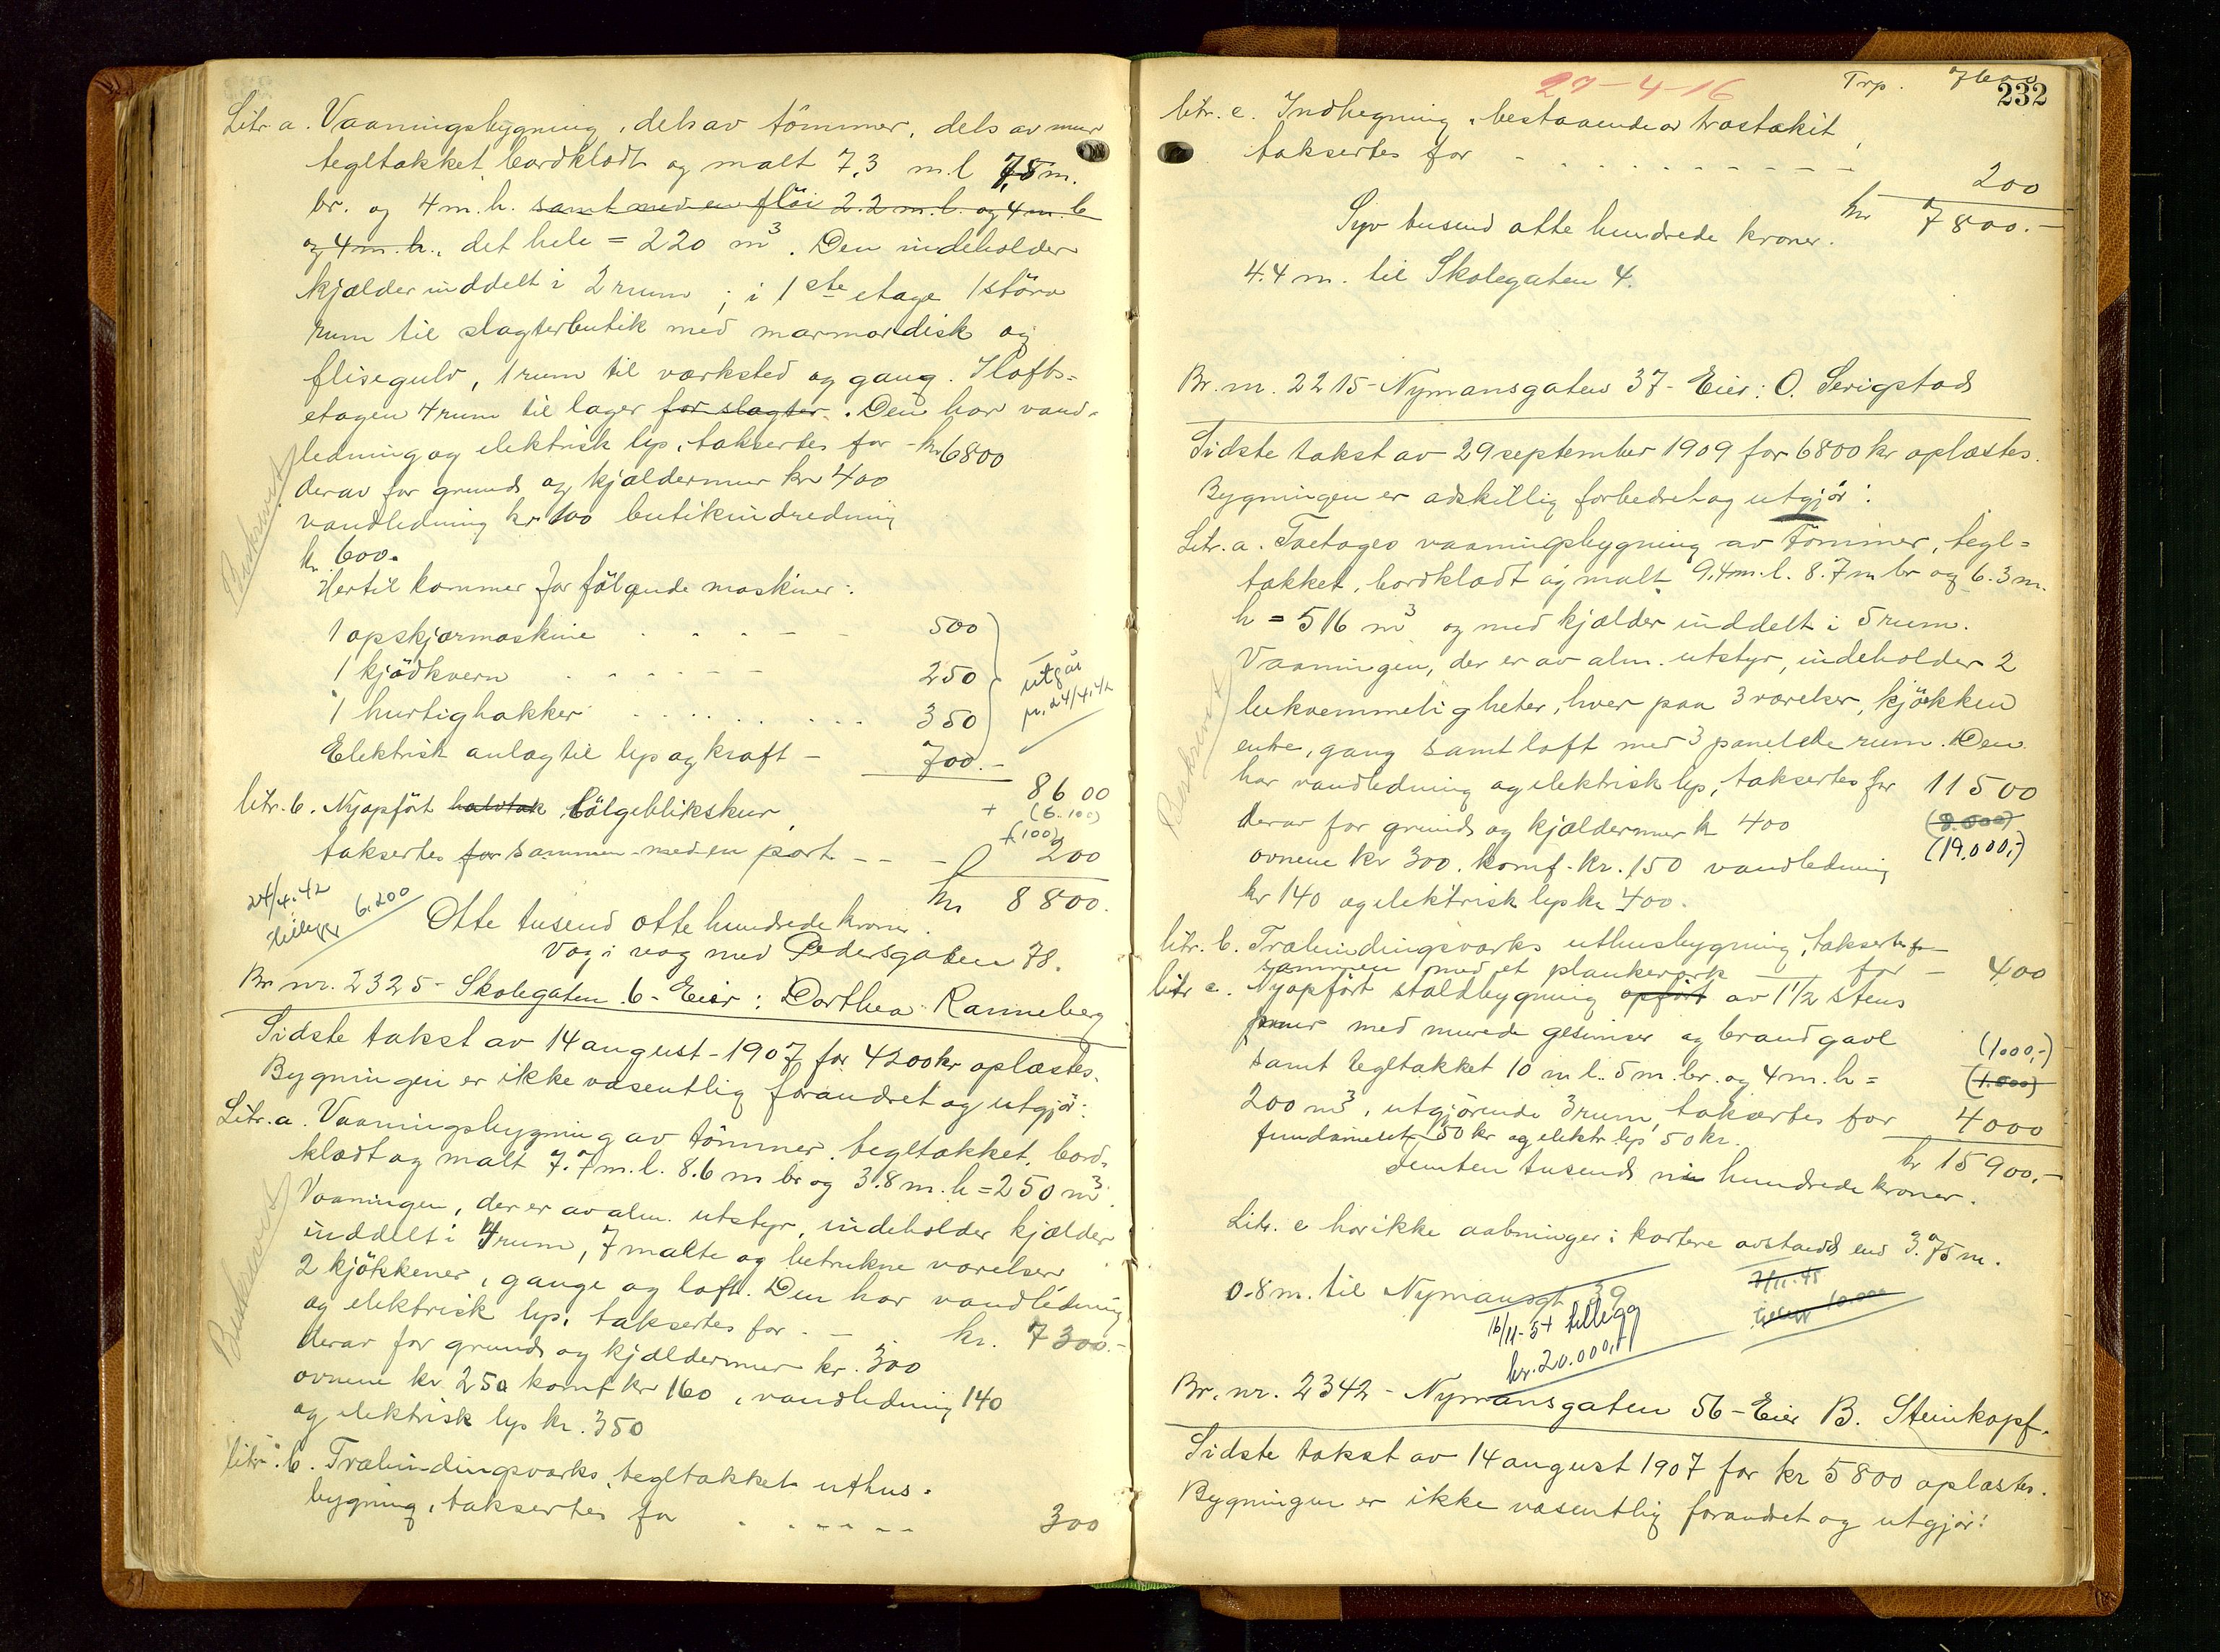 Litr. a. Vaaningsbygning, dels av tömmer, dels av mur
tegltækket bordklædt og malt 7,3 m. l 7,5 m.
br. og 4 m. h. samt med en flöi 2.2 m. l. og 4 m. b
og 4 m. h., det hele = 220 m³. Den indeholder
kjælder inddelt i 2 rum; i 1ste etage 1 större
rum til slagterbutik med marmordisk og
flisegulv, 1 rum til værksted og gang. I lofts=
etagen 4 rum til lager for slagter. Den har vand-
ledning og elektrisk lys, taksertes for - kr 6800
derav for grund og kjældermur kr 400
vandledning kr 100 butikindredning
kr. 600.
Beskrevet
Hertil kommer for fölgende maskiner:
1 opskjærmaskine 500
1 kjödkvern 250
1 hurtighakker 350
Elektrisk anlæg til lys og kraft - 700.-
utgår
pr. 24/4.42
8600
litr. b. Nyopfört halvtak bölgeblikskur + (6.100)
+ (100)
taksertes for sammen med en port - - - 200
kr 8800.
24/4.42
tillegg 6.200
Otte tusend otte hundrede kroner.
Væg i væg med Pedersgaten 78.
Br. nr. 2325 - Skolegaten 6 - Eier: Dorthea Ranneberg
Sidste takst av 14 august - 1907 for 4200 kr oplæstes.
Bygningen er ikke væsentlig forandret og utgjör:
Litr. a. Vaaningsbygning av tömmer, tegltækket, bord-
klædt og malt 7.7 m. l. 8.6 m br og 3.8 m. h = 250 m³.
Vaaningen, der er av alm. utstyr, indeholder kjælder
inddelt i 4 rum, 7 malte og betrukne værelser
2 kjökkener, gange og loft. Den har vandledning
og elektrisk lys, taksertes for - - kr. 7300.-
derav for grund og kjældermur kr. 300
ovnene kr 250 komf kr 160, vandledning 140
og elektrisk lys kr. 350
Beskrevet
litr. b. Træbindingsværks, tegltækket uthus-
bygning, taksertes for - - - - - 300
29-4-16
Trp. 7600
232
litr. c. Indhegning, bestaaende av træstakit,
taksertes for - - - - - - - 200
kr 7800.-
Syv tusend otte hundrede kroner.
4.4 m. til Skolegaten 4.
Br. nr. 2215 - Nymansgaten 37 - Eier: O. Serigstad
Sidste takst av 29 september 1909 for 6800 kr oplæstes.
Bygningen er adskillig forbedret og utgjör:
Litr. a. Toetages vaaningsbygning av tömmer, tegl=
tækket, bordklædt og malt 9.4 m. l. 8.7 m br og 6.3 m.
h = 516 m³ og med kjælder inddelt i 5 rum.
Vaaningen, der er av alm. utstyr, indeholder 2
bekvemmeligheter, hver paa 3 værelser, kjökken
entre, gang samt loft med 3 panelte rum. Den
har vandledning og elektrisk lys, taksertes for 11500
derav for grund og kjældermur kr 400 (8.000)
ovnene kr 300. komf. kr. 150 vandledning (19.000,-)
kr 140 og elektrisk lys kr 400.
Beskrevet
litr. b. Træbindingsværks uthusbygning, taksertes for
sammen med et plankeverk for - 400
litr c. Nyopfört staldbygning opfört av 1 1/2 stens
mur med murede gesimser og brandgavl (1000,-)
samt tegltækket 10 m l. 5 m. br. og 4 m. h = (1.000)
200 m³, utgjörende 3 rum, taksertes for 4000
fundament 150 kr og elektr lys 50 kr.
kr 15900.-
Femten tusend ni hundrede kroner.
Litr. c har ikke aabninger i kortere avstand end 3.75 m.
0.8 m. til Nymansgt. 39
7/11-45
10.000
16/11-51 tillegg
kr. 20.000,-
Br. nr. 2342 - Nymansgaten 56 - Eier B. Steinkopf.
Sidste takst av 14 august 1907 for kr 5800 oplæstes.
Bygningen er ikke væsentlig forandret og utgjör: